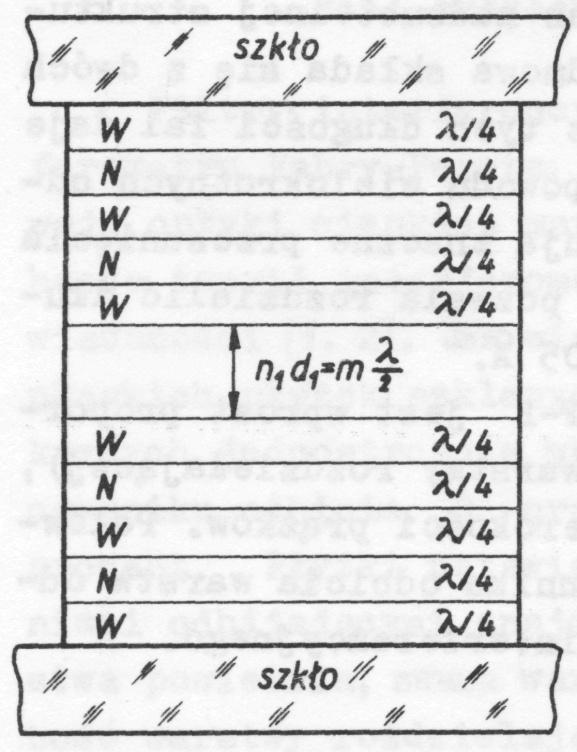 szkło
W λ/4
N λ/4
W λ/4
N λ/4
W λ/4
n₁d₁=m λ/2
W λ/4
N λ/4
W λ/4
N λ/4
W λ/4
szkło